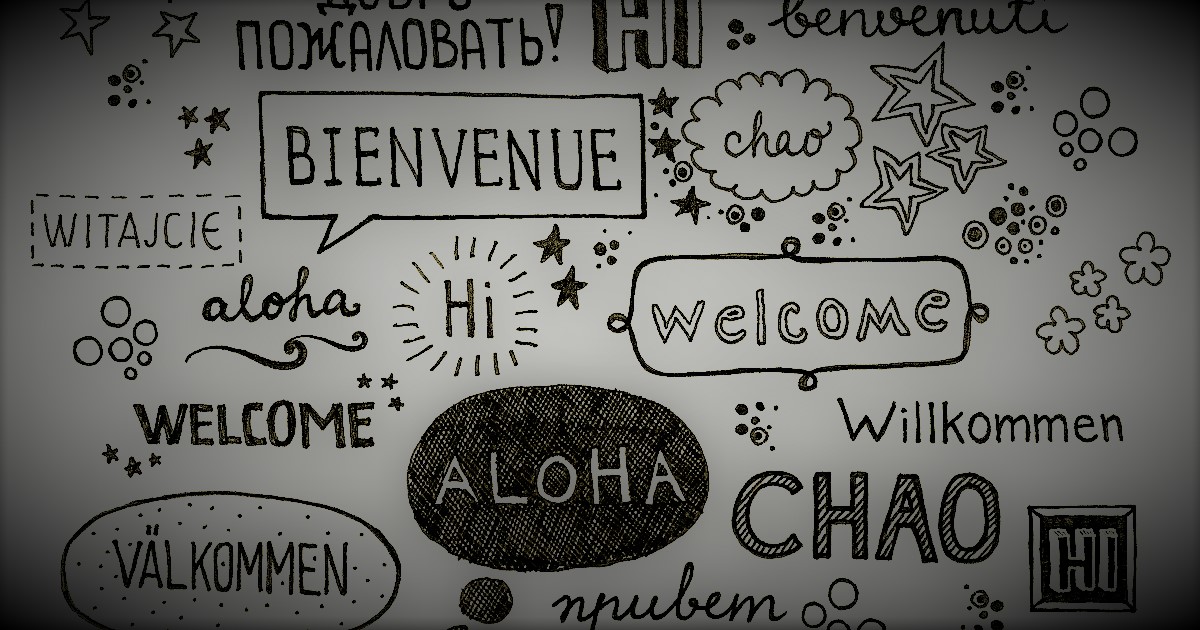 ДОБРО
ПОЖАЛОВАТЬ!
HI
benvenuti
BIENVENUE
chao
WITAJCIE
aloha
Hi
welcome
WELCOME
ALOHA
Willkommen
CHAO
VÄLKOMMEN
HI
привет